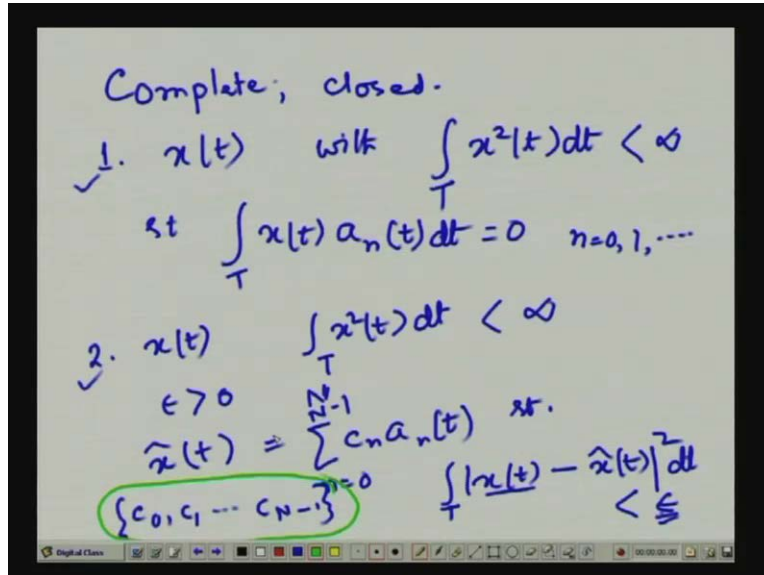 Complete, closed.
1. x(t) with ∫_T x²(t)dt < ∞
st ∫_T x(t) a_n(t)dt = 0 n=0, 1, ....
2. x(t) ∫_T x²(t)dt < ∞
ϵ > 0
x̂(t) = ∑_{n=0}^{N-1} c_n a_n(t) st.
{c_0, c_1 ... c_{N-1}} ∫_T |x(t) - x̂(t)|² dt
< ϵ
Digital Class 00:00:00.00